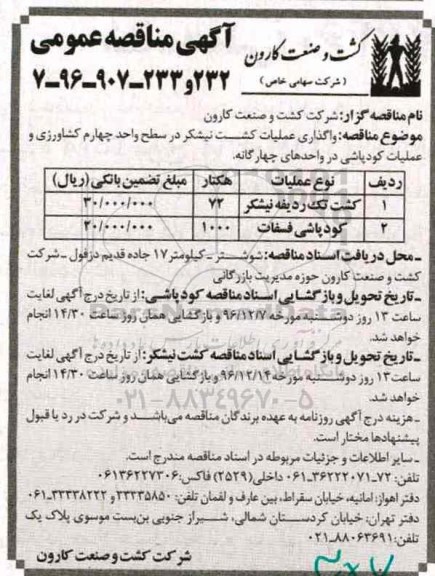 کشت و صنعت کارون
(شرکت سهامی خاص)
آگهی مناقصه عمومی
۲۳۲و۲۳۳-۹۰۷-۹۶-۷
نام مناقصه گزار: شرکت کشت و صنعت کارون
موضوع مناقصه: واگذاری عملیات کشت نیشکر در سطح واحد چهارم کشاورزی و
عملیات کودپاشی در واحدهای چهارگانه.
ردیف نوع عملیات هکتار مبلغ تضمین بانکی (ریال)
۱ کشت تک ردیفه نیشکر ۷۲ ۳۰/۰۰۰/۰۰۰
۲ کودپاشی فسفات ۱۰۰۰ ۲۰/۰۰۰/۰۰۰
- محل دریافت اسناد مناقصه: شوشتر - کیلومتر ۱۷ جاده قدیم دزفول - شرکت
کشت و صنعت کارون حوزه مدیریت بازرگانی
- تاریخ تحویل و بازگشایی اسناد مناقصه کودپاشی: از تاریخ درج آگهی لغایت
ساعت ۱۳ روز دوشنبه مورخه ۹۶/۱۲/۷ و بازگشایی همان روز ساعت ۱۴/۳۰ انجام
خواهد شد.
- تاریخ تحویل و بازگشایی اسناد مناقصه کشت نیشکر: از تاریخ درج آگهی لغایت
ساعت ۱۳ روز دوشنبه مورخه ۹۶/۱۲/۱۴ و بازگشایی همان روز ساعت ۱۴/۳۰ انجام
خواهد شد.
۰۲۱-۸۸۳۴۹۶۷۰-۵
- هزینه درج آگهی روزنامه به عهده برندگان مناقصه می‌باشد و شرکت در رد یا قبول
پیشنهادها مختار است.
- سایر اطلاعات و جزئیات مربوطه در اسناد مناقصه مندرج است.
تلفن: ۷۲-۳۶۲۲۲۰۷۱-۰۶۱ داخلی (۲۵۲۹) فاکس: ۰۶۱۳۶۲۲۷۳۰۶
دفتر اهواز: امانیه، خیابان سقراط، بین عارف و لقمان تلفن: ۳۳۳۳۵۸۵۰ و ۳۳۳۳۸۲۲۲-۰۶۱
دفتر تهران: خیابان کردستان شمالی، شیراز جنوبی بن‌بست موسوی پلاک یک
تلفن: ۸۸۰۶۳۶۹۱-۰۲۱
شرکت کشت و صنعت کارون